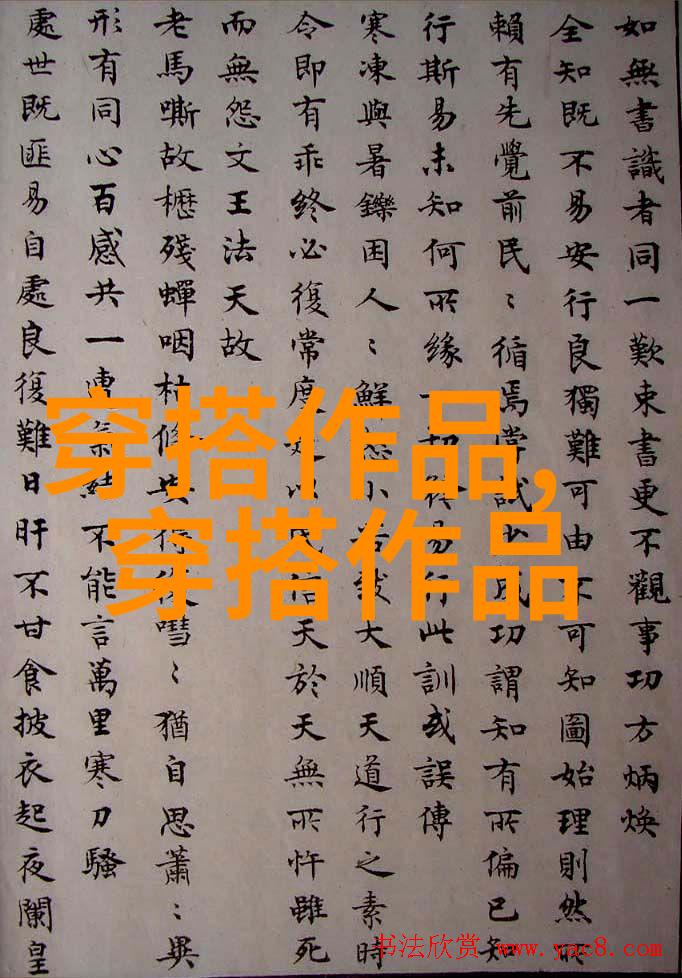 如無書識者同一歎束書更不觀事功方炳煥
全知既不易安行良獨難可由不可知圖始理則然所
賴有先覺前民〻循焉嘗試少成功謂知有所偏已知
行斯易未知何所緣一切從易行此訓或誤傳
寒凍與暑鑠困人〻鮮怨小苦致大順天道行之素時
令即有乖終必復常度是以民信天於天無所忤雖死
而無怨文王法天故
老馬嘶故櫪殘蟬咽枯條嘒〻猶自思蕭〻異
形有同心百感共一遭氣結不能言萬里寒刀騷
處世既匪易自處良復難日旰不甘食披衣起夜闌皇
穿搭作品,
穿搭作品
书法欣赏 www.yac8.com